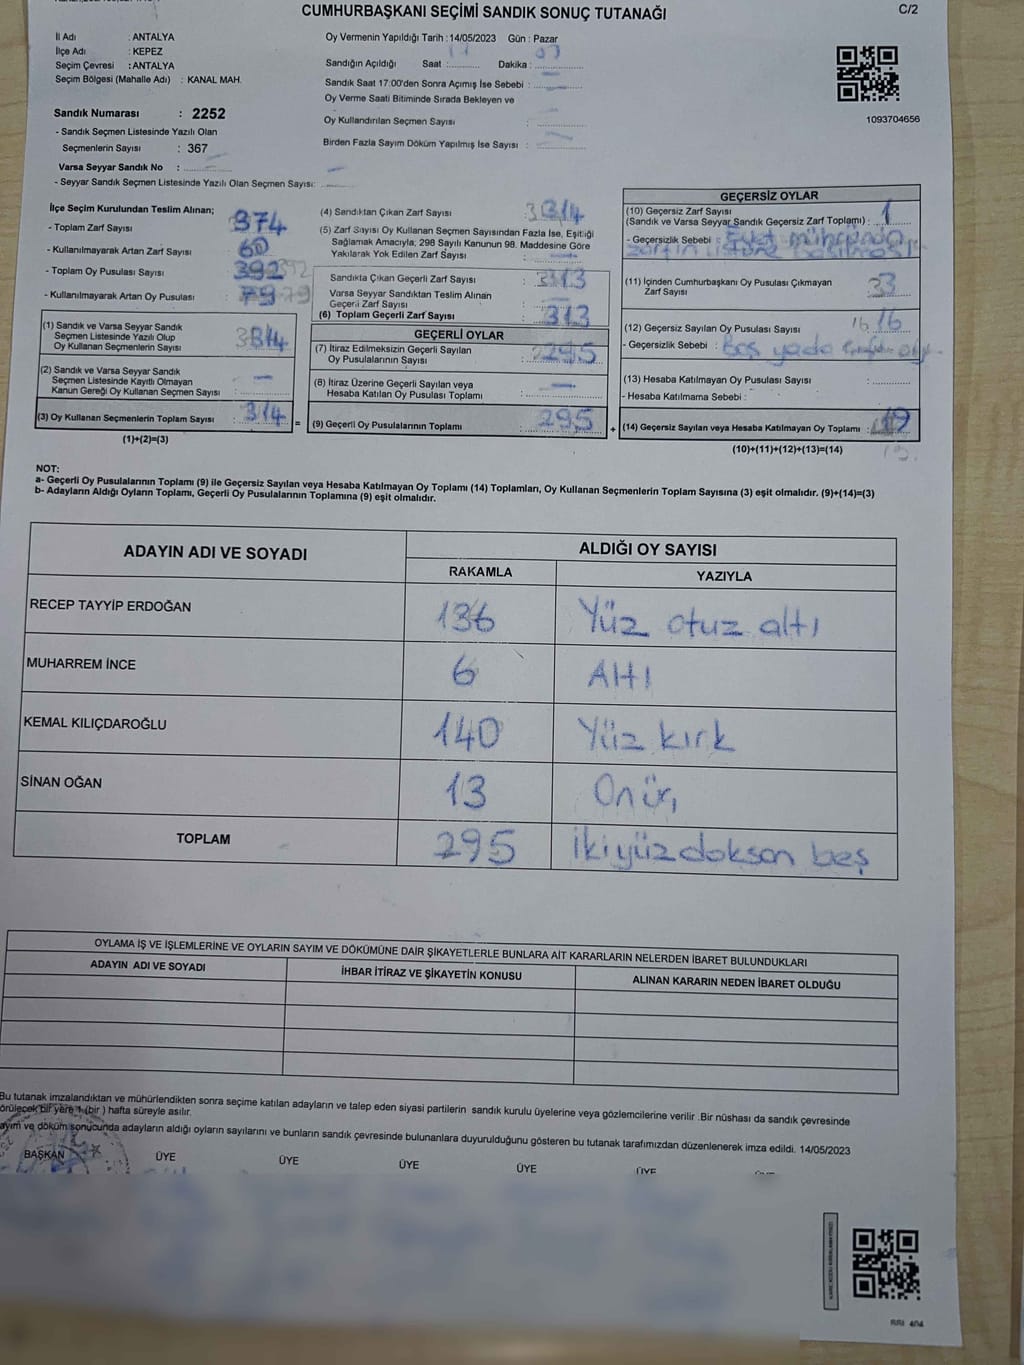 CUMHURBAŞKANI SEÇİMİ SANDIK SONUÇ TUTANAĞI
C/2
İl Adı : ANTALYA
İlçe Adı : KEPEZ
Seçim Çevresi : ANTALYA
Seçim Bölgesi (Mahalle Adı) : KANAL MAH.
Sandık Numarası : 2252
- Sandık Seçmen Listesinde Yazılı Olan
Seçmenlerin Sayısı : 367
Varsa Seyyar Sandık No :
- Seyyar Sandık Seçmen Listesinde Yazılı Olan Seçmen Sayısı:
Oy Vermenin Yapıldığı Tarih : 14/05/2023 Gün : Pazar
Sandığın Açıldığı Saat : Dakika :
Sandık Saat 17:00'den Sonra Açımış İse Sebebi :
Oy Verme Saati Bitiminde Sırada Bekleyen ve
Oy Kullandırılan Seçmen Sayısı :
Birden Fazla Sayım Döküm Yapılmış İse Sayısı :
1093704656
İlçe Seçim Kurulundan Teslim Alınan;
- Toplam Zarf Sayısı : 374
- Kullanılmayarak Artan Zarf Sayısı : 60
- Toplam Oy Pusulası Sayısı : 392
- Kullanılmayarak Artan Oy Pusulası : 79
(1) Sandık ve Varsa Seyyar Sandık
Seçmen Listesinde Yazılı Olup
Oy Kullanan Seçmenlerin Sayısı : 314
(2) Sandık ve Varsa Seyyar Sandık
Seçmen Listesinde Kayıtlı Olmayan
Kanun Gereği Oy Kullanan Seçmen Sayısı :
(3) Oy Kullanan Seçmenlerin Toplam Sayısı : 314
(1)+(2)=(3)
(4) Sandıktan Çıkan Zarf Sayısı : 314
(5) Zarf Sayısı Oy Kullanan Seçmen Sayısından Fazla İse, Eşitliği
Sağlamak Amacıyla; 298 Sayılı Kanunun 98. Maddesine Göre
Yakılarak Yok Edilen Zarf Sayısı :
Sandıkta Çıkan Geçerli Zarf Sayısı : 313
Varsa Seyyar Sandıktan Teslim Alınan
Geçerli Zarf Sayısı :
(6) Toplam Geçerli Zarf Sayısı : 313
GEÇERLİ OYLAR
(7) İtiraz Edilmeksizin Geçerli Sayılan
Oy Pusulalarının Sayısı : 295
(8) İtiraz Üzerine Geçerli Sayılan veya
Hesaba Katılan Oy Pusulası Toplamı :
(9) Geçerli Oy Pusulalarının Toplamı : 295
=
+
GEÇERSİZ OYLAR
(10) Geçersiz Zarf Sayısı
(Sandık ve Varsa Seyyar Sandık Geçersiz Zarf Toplamı) : 1
- Geçersizlik Sebebi : Evet mührünün
zarfın üstüne basılması
(11) İçinden Cumhurbaşkanı Oy Pusulası Çıkmayan
Zarf Sayısı :
(12) Geçersiz Sayılan Oy Pusulası Sayısı : 16
- Geçersizlik Sebebi : Boş yada
(13) Hesaba Katılmayan Oy Pusulası Sayısı :
- Hesaba Katılmama Sebebi :
(14) Geçersiz Sayılan veya Hesaba Katılmayan Oy Toplamı : 19
(10)+(11)+(12)+(13)=(14)
NOT:
a- Geçerli Oy Pusulalarının Toplamı (9) ile Geçersiz Sayılan veya Hesaba Katılmayan Oy Toplamı (14) Toplamları, Oy Kullanan Seçmenlerin Toplam Sayısına (3) eşit olmalıdır. (9)+(14)=(3)
b- Adayların Aldığı Oyların Toplamı, Geçerli Oy Pusulalarının Toplamına (9) eşit olmalıdır.
ADAYIN ADI VE SOYADI
ALDIĞI OY SAYISI
RAKAMLA YAZIYLA
RECEP TAYYİP ERDOĞAN 136 Yüz otuz altı
MUHARREM İNCE 6 Altı
KEMAL KILIÇDAROĞLU 140 Yüz kırk
SİNAN OĞAN 13 Onüç
TOPLAM 295 İkiyüzdoksan beş
OYLAMA İŞ VE İŞLEMLERİNE VE OYLARIN SAYIM VE DÖKÜMÜNE DAİR ŞİKAYETLERLE BUNLARA AİT KARARLARIN NELERDEN İBARET BULUNDUKLARI
ADAYIN ADI VE SOYADI İHBAR İTİRAZ VE ŞİKAYETİN KONUSU ALINAN KARARIN NEDEN İBARET OLDUĞU
Bu tutanak imzalandıktan ve mühürlendikten sonra seçime katılan adayların ve talep eden siyasi partilerin sandık kurulu üyelerine veya gözlemcilerine verilir .Bir nüshası da sandık çevresinde
örülecek bir yere 1 (bir ) hafta süreyle asılır.
ayım ve döküm sonucunda adayların aldığı oyların sayılarını ve bunların sandık çevresinde bulunanlara duyurulduğunu gösteren bu tutanak tarafımızdan düzenlenerek imza edildi. 14/05/2023
BAŞKAN ÜYE ÜYE ÜYE ÜYE ÜYE